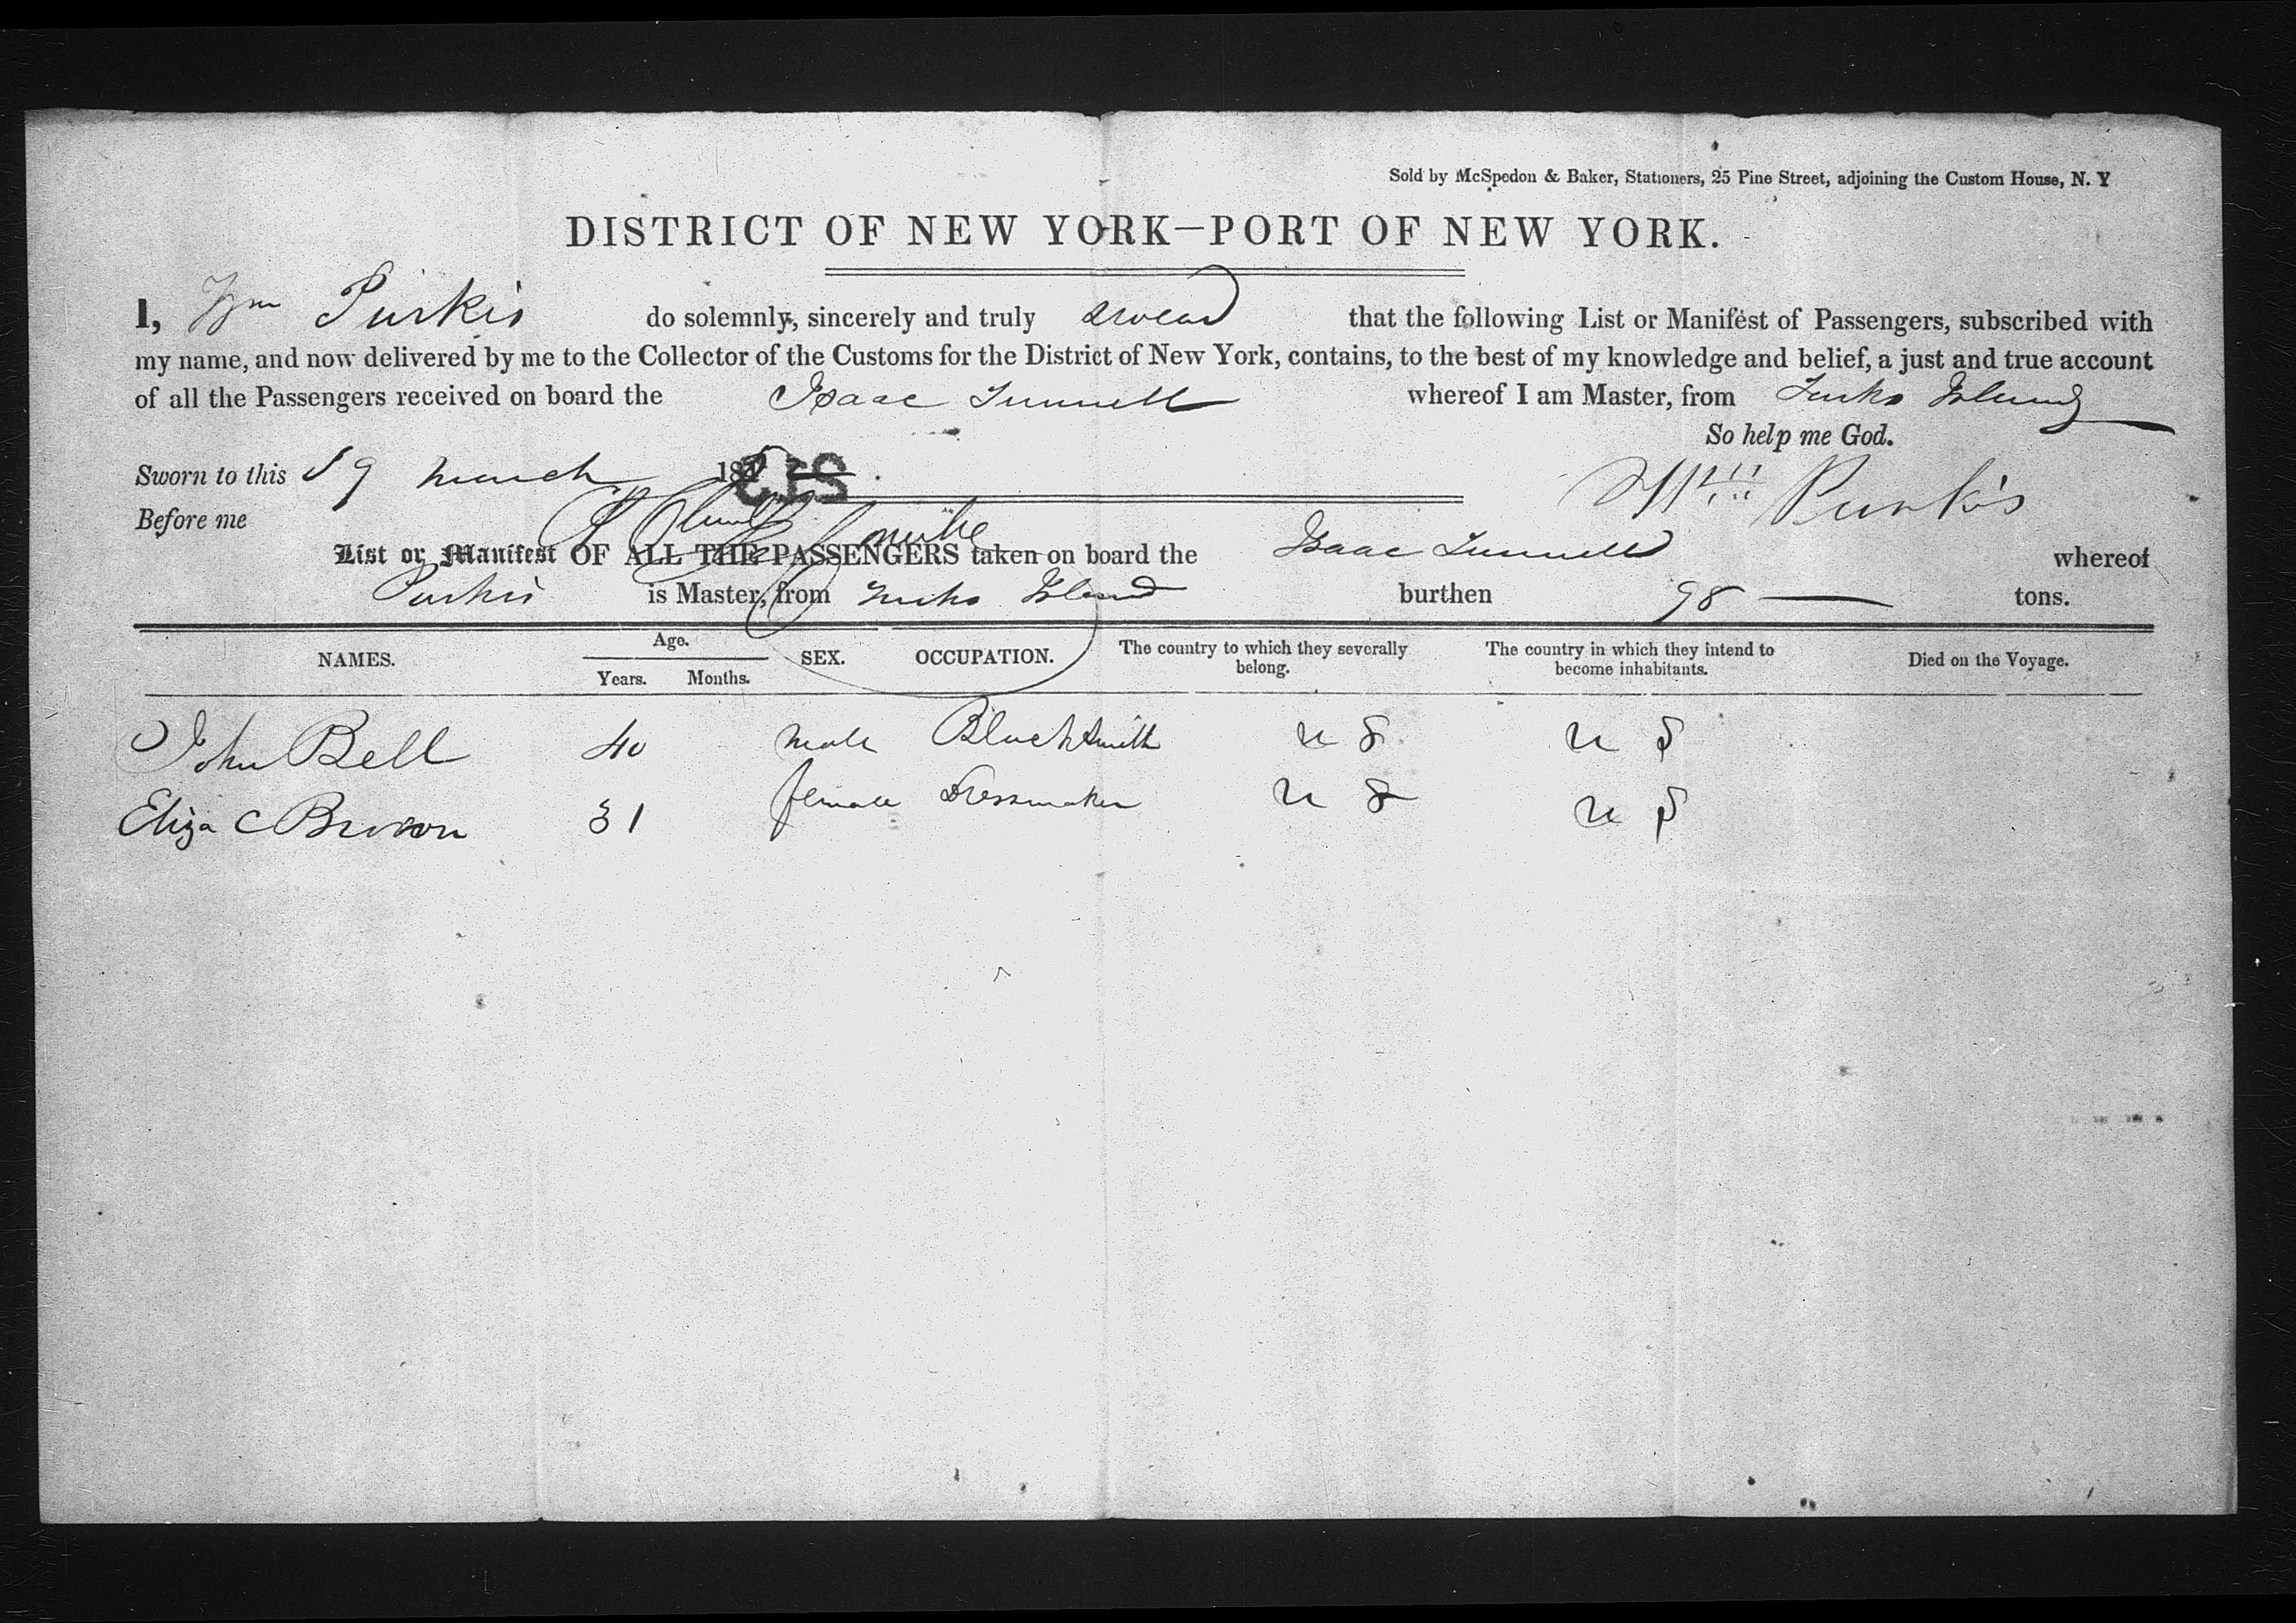 Sold by McSpedon & Baker, Stationers, 25 Pine Street, adjoining the Custom House, N. Y
DISTRICT OF NEW YORK—PORT OF NEW YORK.
I, Wm Purkis do solemnly, sincerely and truly swear that the following List or Manifest of Passengers, subscribed with
my name, and now delivered by me to the Collector of the Customs for the District of New York, contains, to the best of my knowledge and belief, a just and true account
of all the Passengers received on board the Isaac Tunnell whereof I am Master, from Turks Island
So help me God.
Sworn to this 19 March 18
Wm Purkis
Before me
List or Manifest OF ALL THE PASSENGERS taken on board the Isaac Tunnell whereof
Purkis is Master, from Turks Island burthen 98 — tons.
NAMES. Age. Years. Months. SEX. OCCUPATION. The country to which they severally belong. The country in which they intend to become inhabitants. Died on the Voyage.
John Bell 40 male Blacksmith U S U S
Eliza C Brown 31 female Dressmaker U S U S